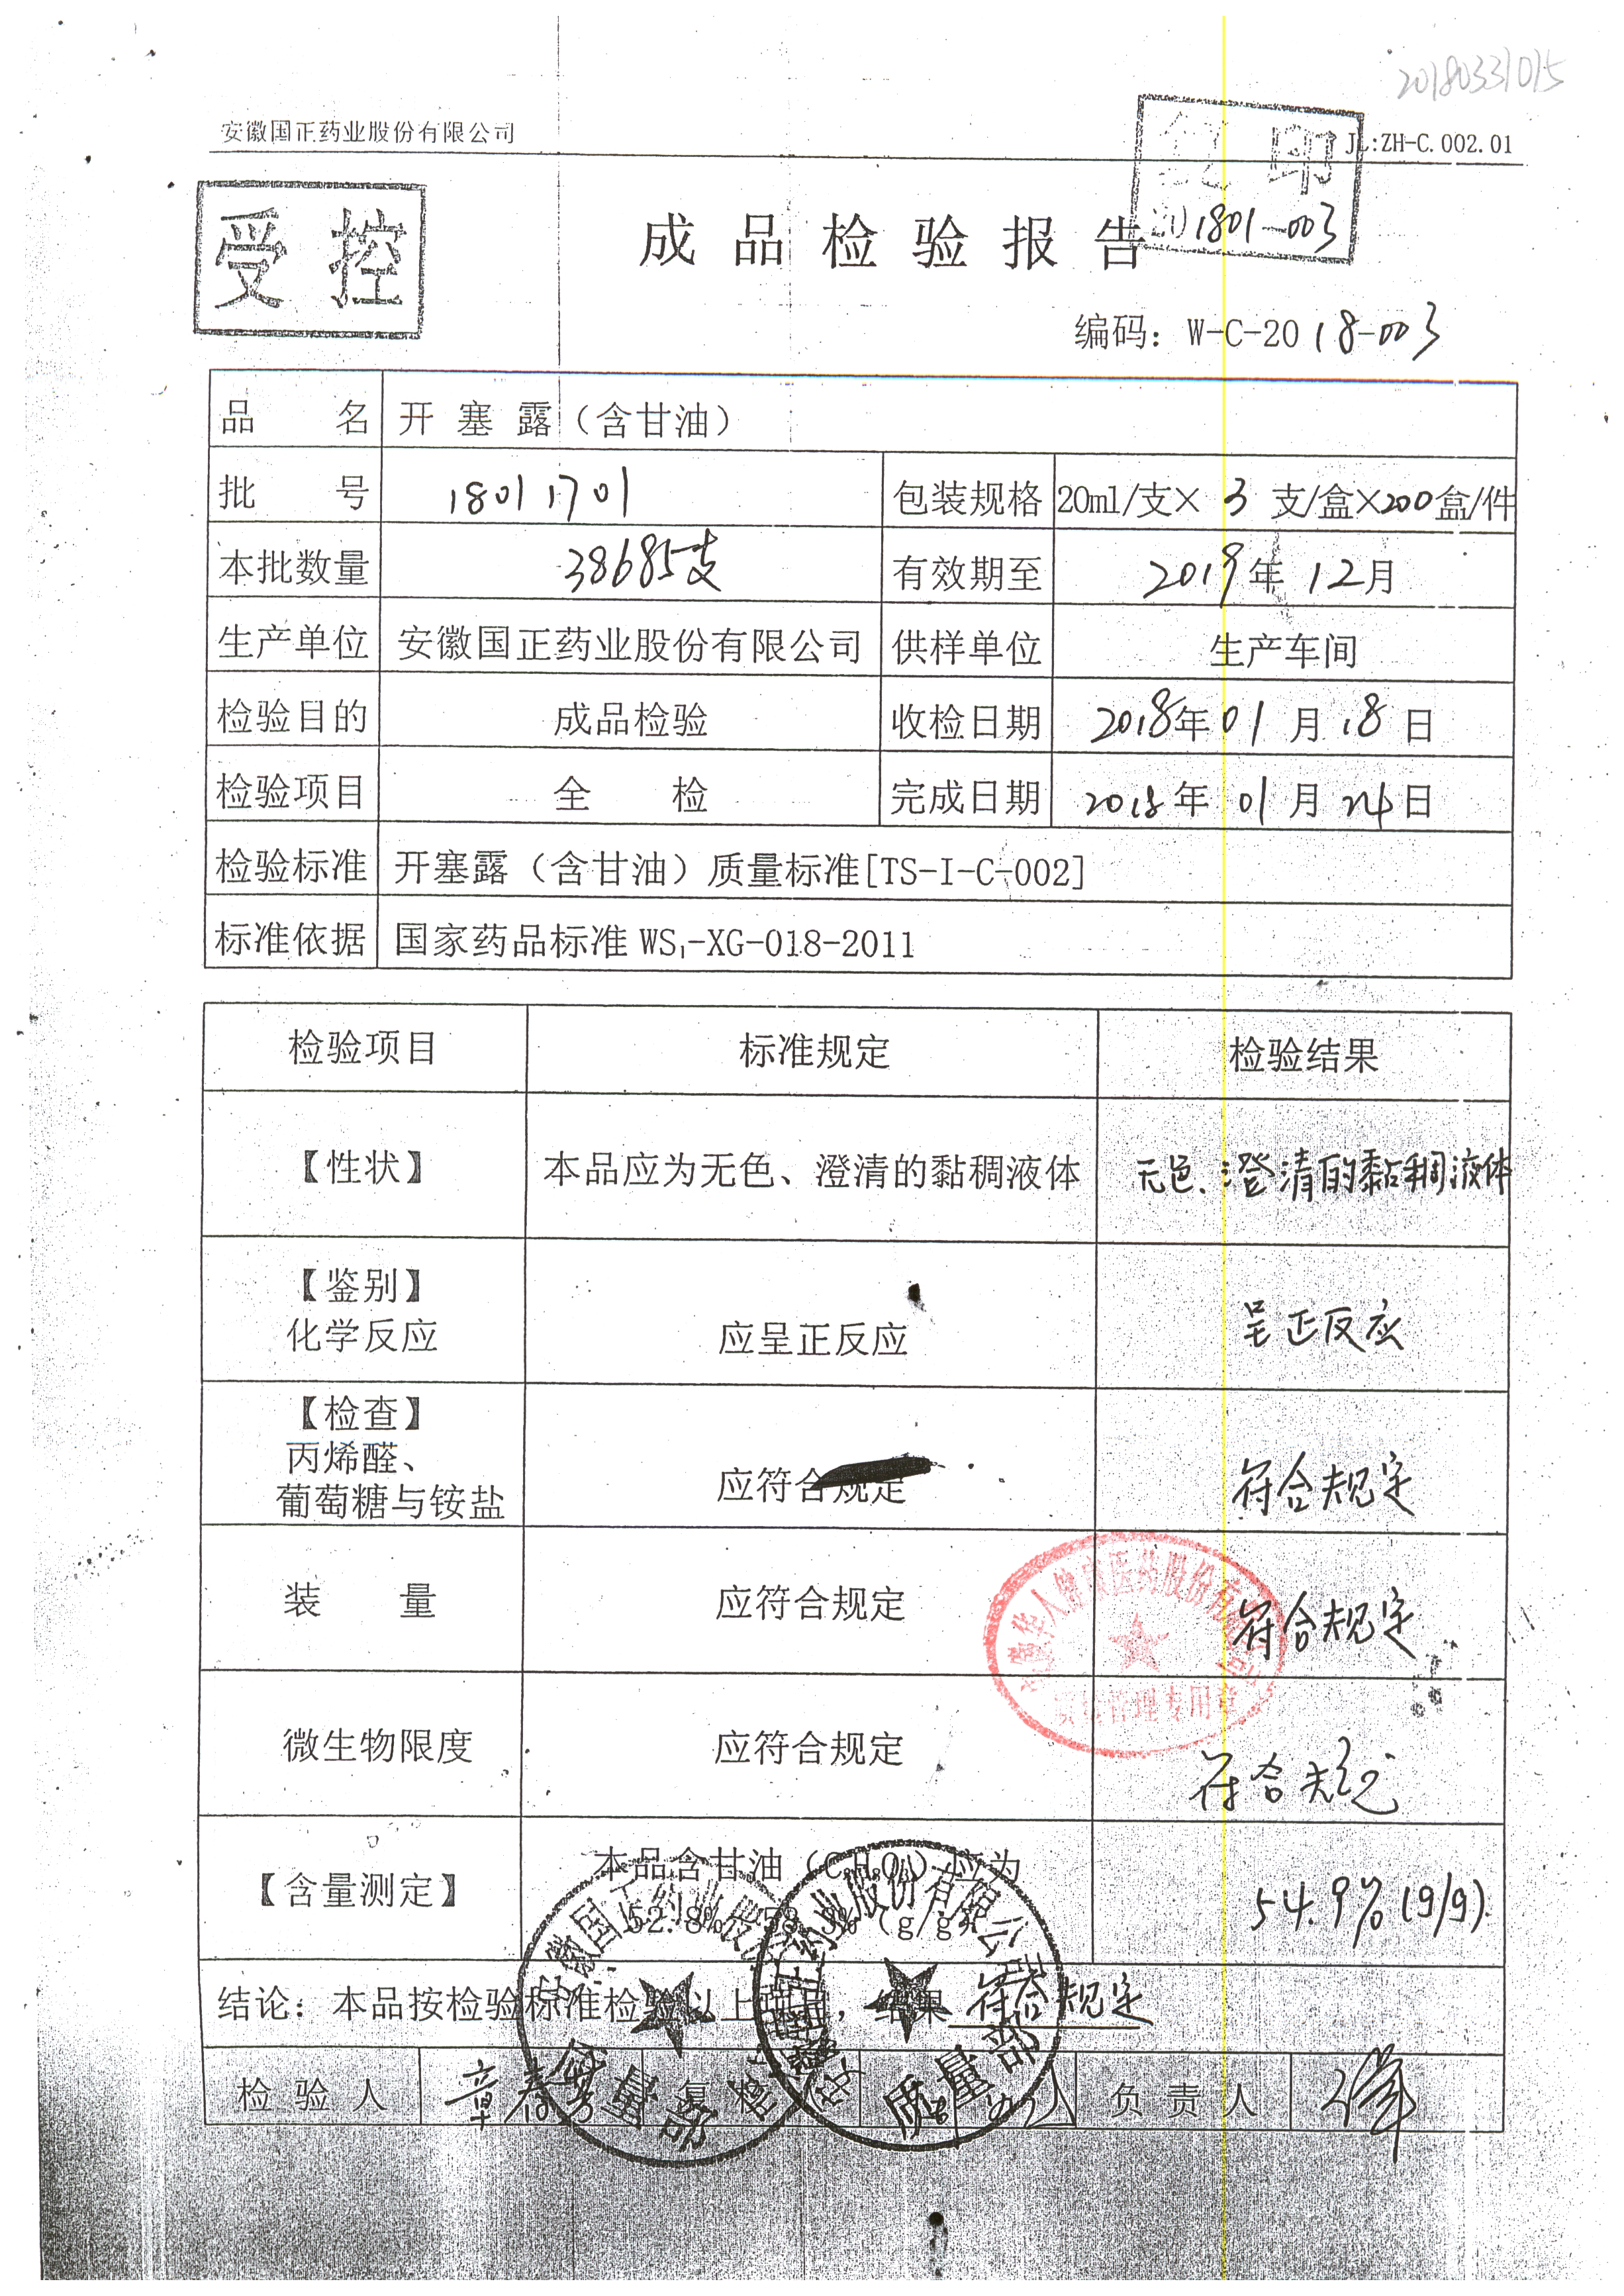 20180331015
安徽国正药业股份有限公司
JL:ZH-C.002.01
复印
1801-003
受控
成品检验报告
编码：W-C-2018-003
品 名 开塞露（含甘油）
批 号 18011701 包装规格 20ml/支×3支/盒×200盒/件
本批数量 38685支 有效期至 2019年12月
生产单位 安徽国正药业股份有限公司 供样单位 生产车间
检验目的 成品检验 收检日期 2018年01月18日
检验项目 全 检 完成日期 2018年01月24日
检验标准 开塞露（含甘油）质量标准[TS-I-C-002]
标准依据 国家药品标准 WS₁-XG-018-2011
检验项目 标准规定 检验结果
【性状】 本品应为无色、澄清的黏稠液体 无色、澄清的黏稠液体
【鉴别】
化学反应 应呈正反应 呈正反应
【检查】
丙烯醛、
葡萄糖与铵盐 应符合规定 符合规定
装 量 应符合规定 符合规定
安徽华人健康医药股份有限公司
质量管理专用章
微生物限度 应符合规定 符合规定
本品含甘油（C₃H₈O₃）应为
【含量测定】 52.8% 58.3%（g/g） 54.9%(g/g).
结论：本品按检验标准检验以上项目，结果 符合规定
检验人 章春 复核人 负责人
安徽国正药业股份有限公司
质量部
安徽国正药业股份有限公司
质量部